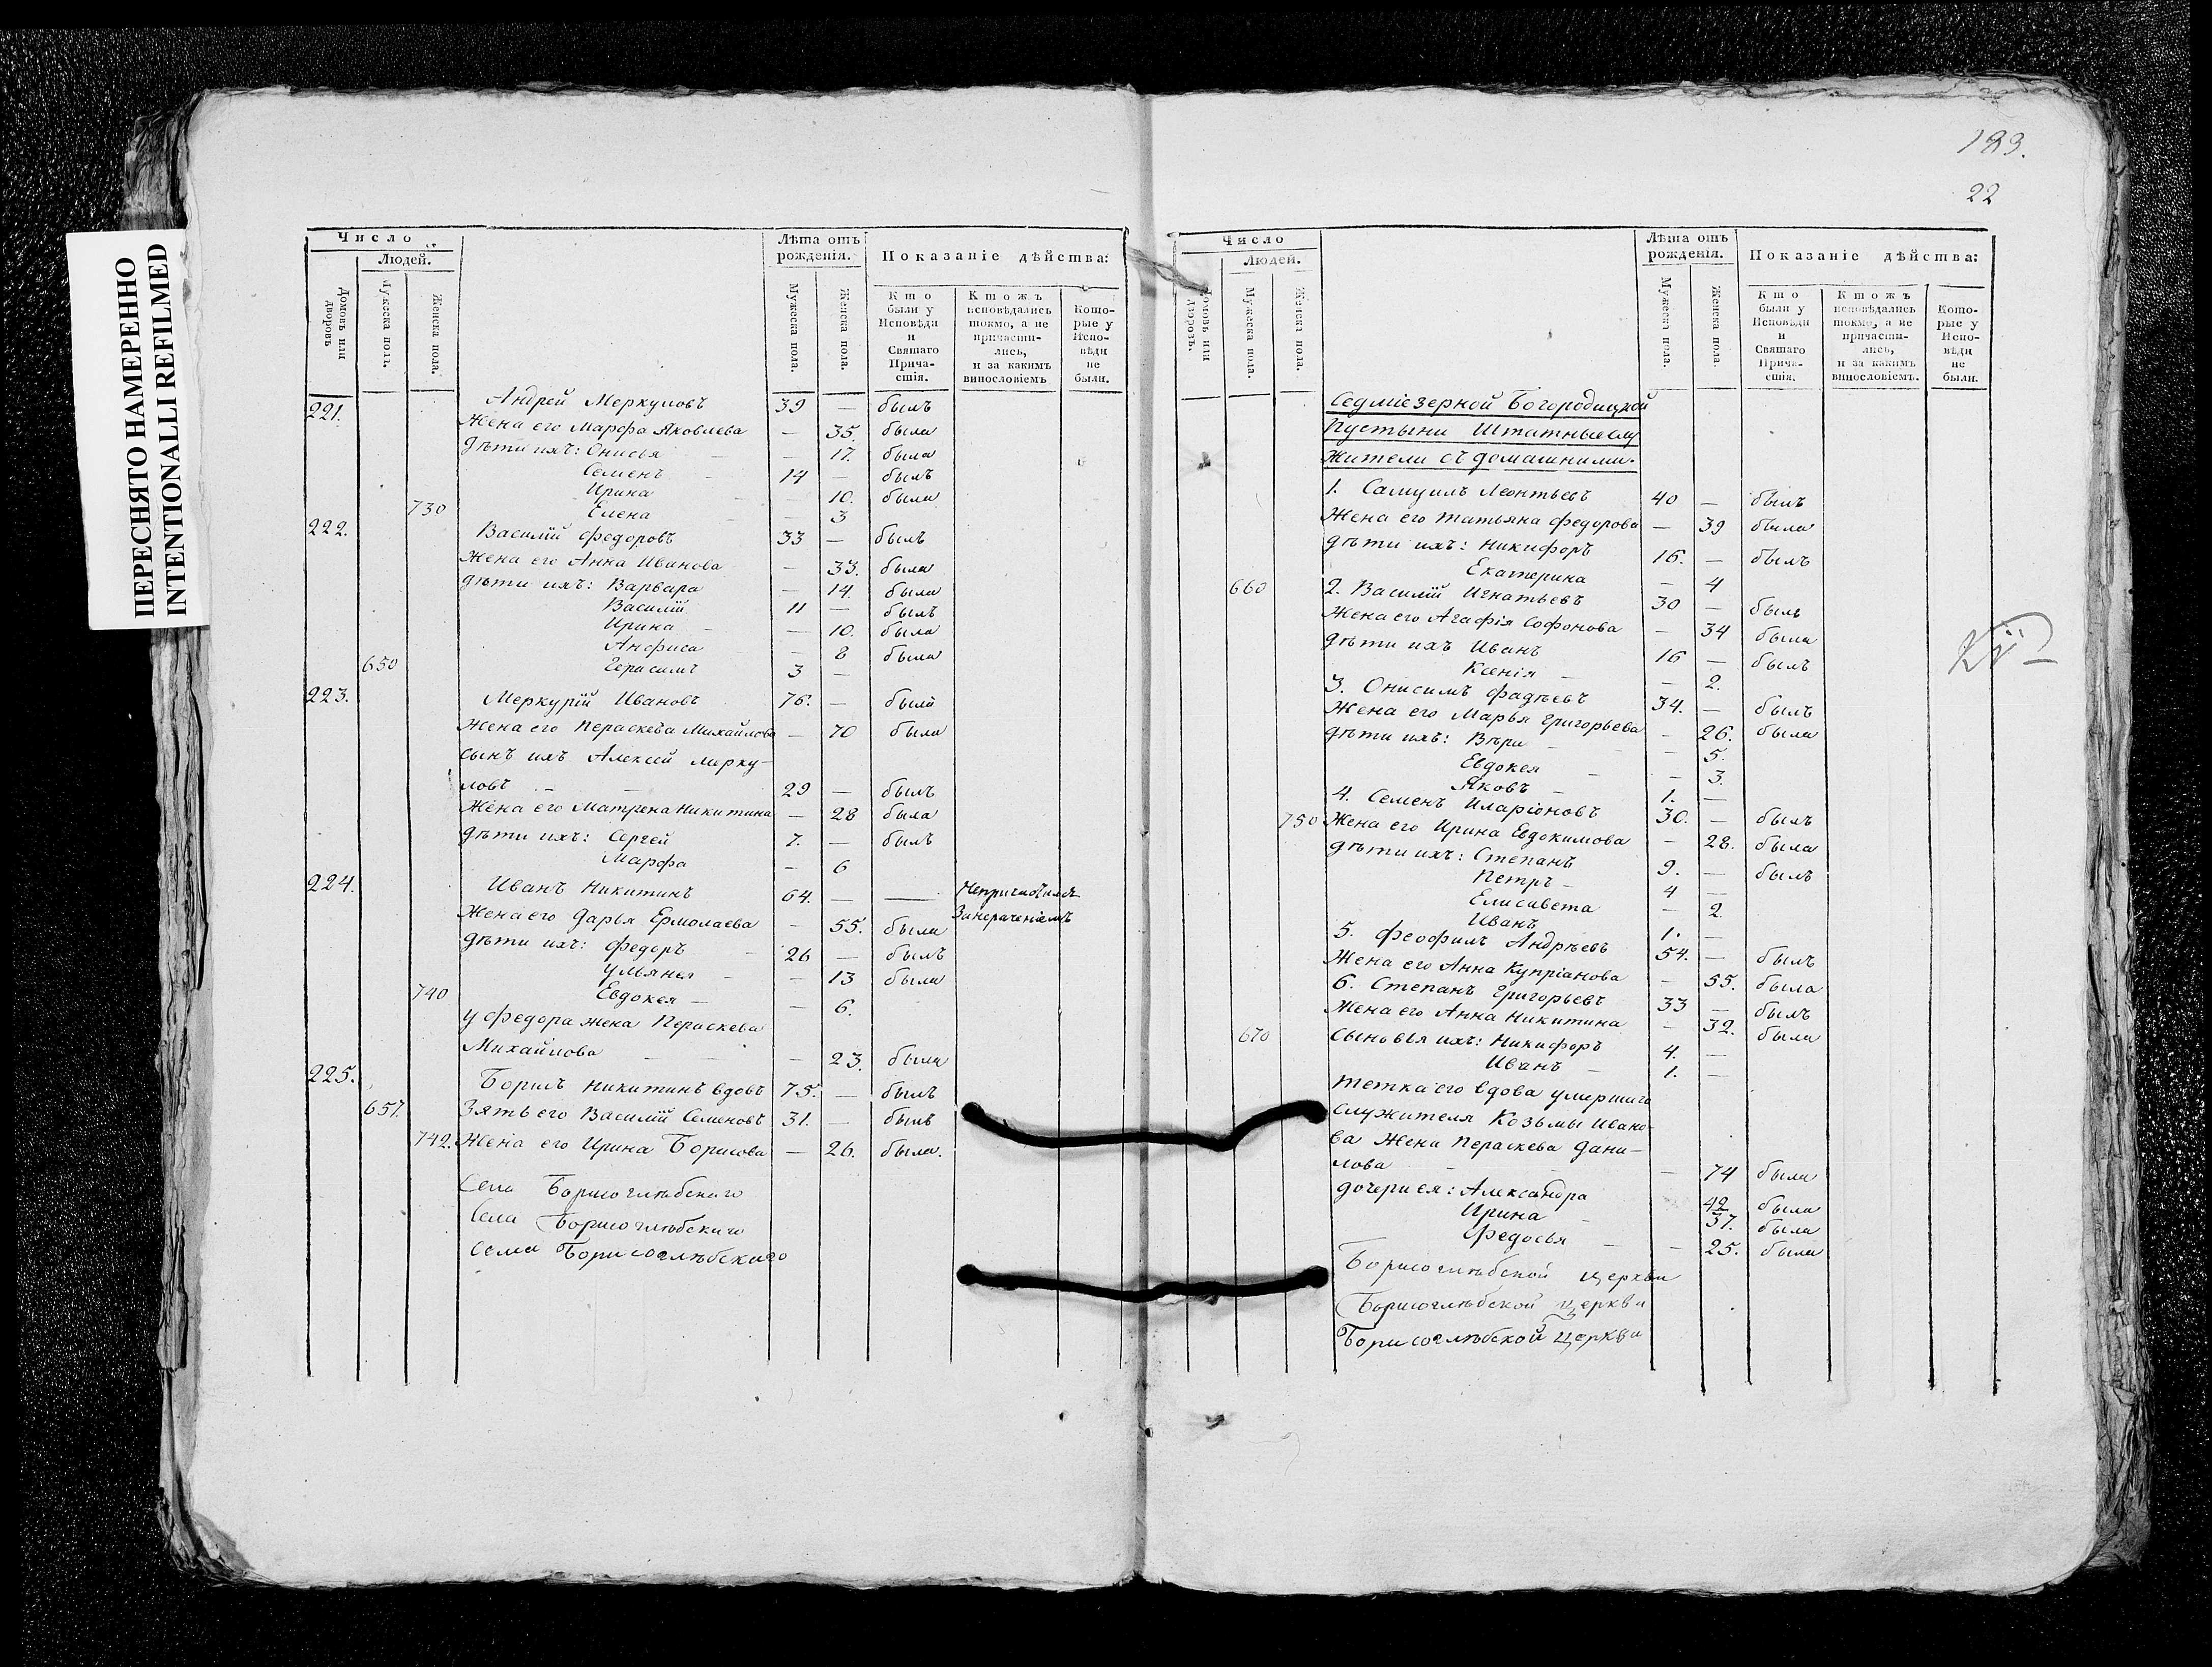 ПЕРЕСНЯТО НАМЕРЕННО
INTENTIONALLI REFILMED
Число
Людей.
Домовъ или дворовъ
Мужеска пола.
Женска пола.
Лѣта отъ рожденія.
Мужеска пола.
Женска пола.
Показаніе дѣйства:
Кто были у Исповѣди и Святаго Причастія.
Ктожъ исповѣдались токмо, а не причастились, и за какимъ винословіемъ
Которые у Исповѣди не были.
221. Андрей Меркуловъ 39 — былъ
Жена его Марфа Яковлева — 35. была
Дѣти ихъ: Онисья — 17. была
Семенъ 14 — былъ
Ирина — 10. была
730 Елена — 3
222. Василій Федоровъ 33 — былъ
Жена его Анна Иванова — 33. была
Дѣти ихъ: Варвара — 14. была
Василій 11 — былъ
Ирина — 10. была
Анфиса — 8 была
650 Герасимъ 3 —
223. Меркурій Ивановъ 76. — былъ
Жена его Пераскева Михайлова — 70 была
сынъ ихъ Алексей Мерку-
ловъ 29 — былъ
Жена его Матрена Никитина — 28 была
Дѣти ихъ: Сергей 7. — былъ
Марфа — 6
224. Иванъ Никитинъ 64. — —
Занераченіемъ
Жена его Дарья Ермолаева — 55. была
Дѣти ихъ: Федоръ 26 — былъ
Ульянья — 13 была
740 Евдокея — 6.
у Федора жена Пераскева
Михайлова — 23. была
225. Борисъ Никитинъ вдовъ 75. — былъ
657. Зять его Василій Семеновъ 31. — былъ
742. Жена его Ирина Борисова — 26. была.
Села Борисоглѣбскаго
Села Борисоглѣбскаго
Села Борисоглѣбскаго
183.
22
Число
Людей.
Домовъ или дворовъ.
Мужеска пола.
Женска пола.
Лѣта отъ рожденія.
Мужеска пола.
Женска пола.
Показаніе дѣйства:
Кто были у Исповѣди и Святаго Причастія.
Ктожъ исповѣдались токмо, а не причастились, и за какимъ винословіемъ.
Которые у Исповѣди не были.
Седміезерной Богородицкой
Пустыни Штатные слу
жители съ домашними.
1. Самуилъ Леонтьевъ 40 — былъ
Жена его Татьяна Федорова — 39 была
Дѣти ихъ: Никифоръ 16. — былъ
Екатерина — 4
660 2. Василій Игнатьевъ 30 — былъ
Жена его Агафія Софонова — 34 была
Дѣти ихъ Иванъ 16 — былъ
Ксенія — 2.
3. Онисимъ Фадѣевъ 34. — былъ
Жена его Марья Григорьева — 26. была
Дѣти ихъ: Вѣра — 5.
Евдокея — 3.
Яковъ 1. —
4. Семенъ Иларіоновъ 30. — былъ
750 Жена его Ирина Евдокимова — 28. была
Дѣти ихъ: Степанъ 9. — былъ
Петръ 4 —
Елисавета — 2.
Иванъ 1. —
5. Феофилъ Андрѣевъ 54. — былъ
Жена его Анна Купріанова — 55. была
6. Степанъ Григорьевъ 33 — былъ
Жена его Анна Никитина — 32. была
670 Сыновья ихъ: Никифоръ 4. —
Иванъ 1. —
Тетка его вдова умершаго
служителя Козьмы Ивано-
ва жена Пераскева Дани-
лова — 74 была
дочери ея: Александра 42 была
Ирина 37. была
Федосья — 25. была
Борисоглѣбской церкви
Борисоглѣбской церкви
Борисоглѣбской церкви